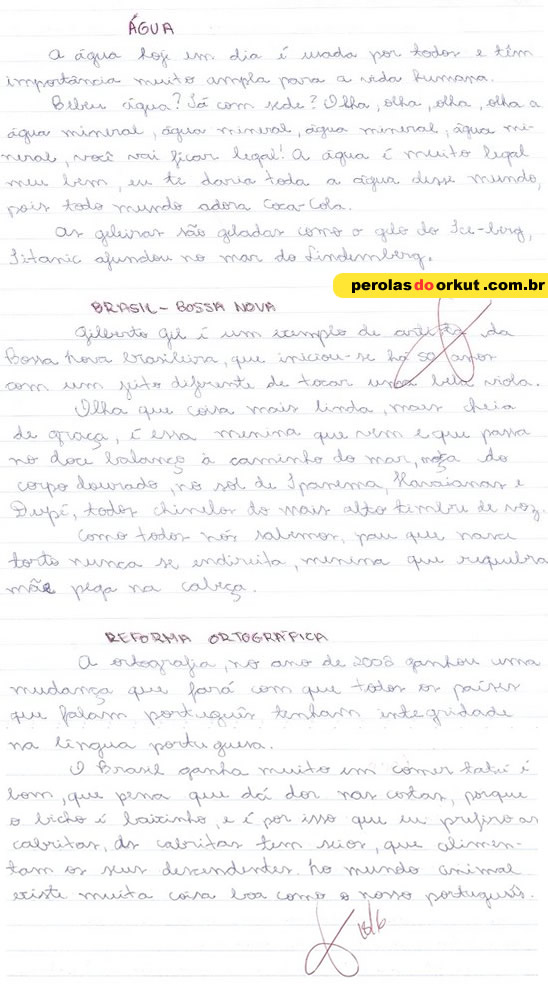 ÁGUA
A água hoje em dia é usada por todos e têm
importância muito ampla para a vida humana.
Bebeu água? Tá com sede? Olha, olha, olha, olha a
água mineral, água mineral, água mineral, água mi-
neral, você vai ficar legal! A água é muito legal
meu bem, eu te daria toda a água desse mundo,
pois todo mundo adora Coca-Cola.
As geleiras são geladas como o gelo do Ice-berg,
Titanic afundou no mar do Lindemberg.
perolasdoorkut.com.br
BRASIL - BOSSA NOVA
Gilberto Gil é um exemplo de artista da
Bossa Nova brasileira, que iniciou-se há 50 anos
com um jeito diferente de tocar uma bela viola.
Olha que coisa mais linda, mais cheia
de graça, é essa menina que vem e que passa
no doce balanço à caminho do mar, moça do
corpo dourado, no sol de Ipanema, Havaianas e
Dupé, todos chinelos do mais alto timbre de voz.
Como todos nós sabemos, pau que nasce
torto nunca se endireita, menina que requebra
mãe pega na cabeça.
REFORMA ORTOGRÁFICA
A ortografia, no ano de 2008 ganhou uma
mudança que fará com que todos os países
que falam português tenham integridade
na língua portuguesa.
O Brasil ganha muito em comer tatu é
bom, que pena que dá dor nas costas, porque
o bicho é baixinho, e é por isso que eu prefiro as
cabritas, as cabritas tem seios, que alimen-
tam os seus descendentes. No mundo animal
existe muita coisa boa como o nosso português.